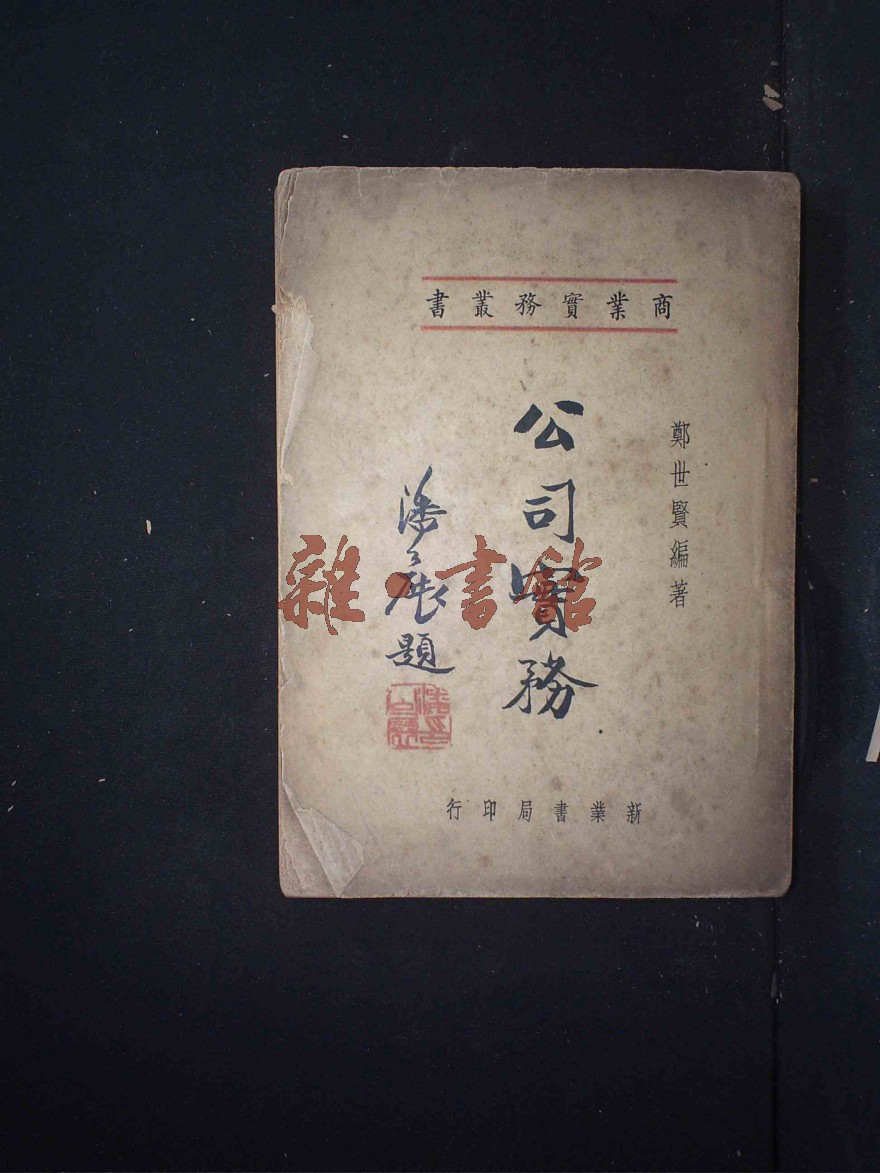 商業實務叢書
鄭世賢編著
公司實務
潘公展題
新業書局印行
雜·書館